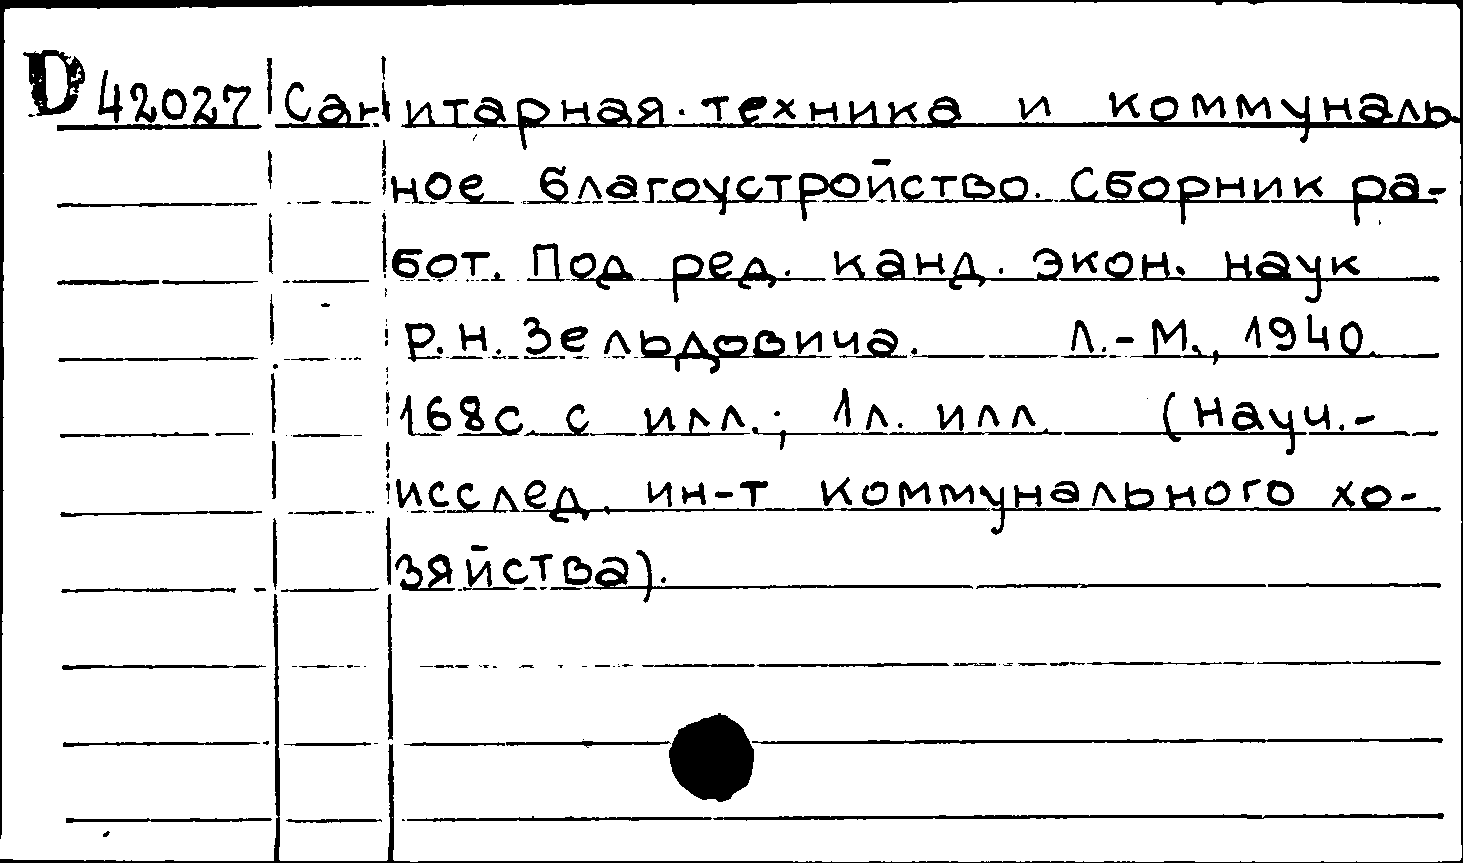 D 42027 Санитарная техника и коммуналь-
ное благоустройство. Сборник ра-
бот. Под ред. канд. экон. наук
Р.Н. Зельдовича. Л.-М., 1940.
168с. с илл.; 1л. илл. (Науч.-
исслед. ин-т коммунального хо-
зяйства).